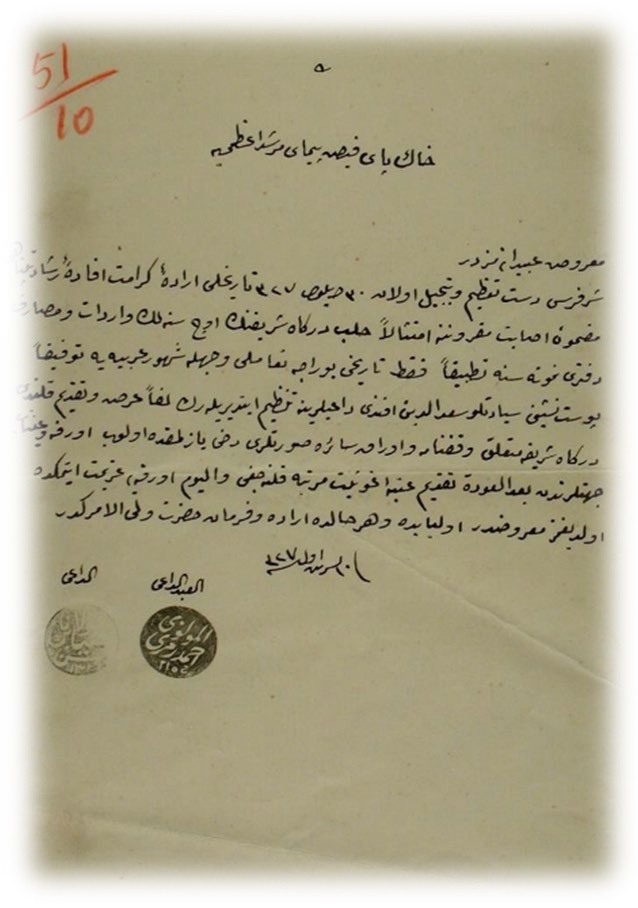 51
10
خاك پای فیض پیمای مرشد اعظمی یه
معروض عبیدانه مزدر
شرفرس دست تعظیم وتبجیل اولان ٣٠ ٣٢٧ تاریخلی ارادهٔ كرامت افادهٔ
مضمون اصابت مقروننه امتثالاً حلب درگاه شریفنك اوچ سنه لك واردات
دفتری نمونه سنه تطبیقاً فقط تاریخی بوراجه تعاملی وجهله شهور عربیه یه توفیقاً
پوست نشینی سیادتلو سعد الدین افندی داعیلرینه تنظیم ایتدیریله رك لفاً عرض وتقدیم
درگاه شریفه متعلق وقفنامه واوراق سائره صورتلری دخی یازلمقده اولوب اورفه
جهتلرندن بعد العوده تقدیم عتبهٔ غوثیت مرتبه قلنه جغی والیوم اورفه یه عزیمت ایتمكده
اولدیغمز معروضدر اولبابده وهر حالده اراده وفرمان حضرت ولی الامركدر
٣٢٧
العبد الداعی
الداعی
المولوی
احمد رمزی